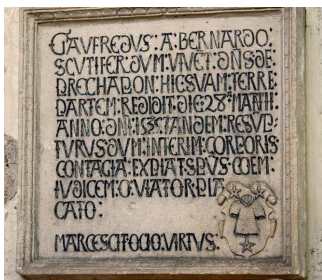 GAVFREDVS: A: BERNARDO:
SCVTIFER DVM VIVET: DNS DE
PRECHADON: HIC SVAM: TERRE:
PARTEM: REDIDIT: DIE: 28: MARTII
ANNO: DNI TANDEM: RESVP-
TVRVS DVM: INTERIM: CORPORIS
CONTAGIA: EXPIAT SPVS: COEM:
IVDICEM: O: VIATOR: PLA
CATO:
MARCESCIT OCIO: VIRTVS: